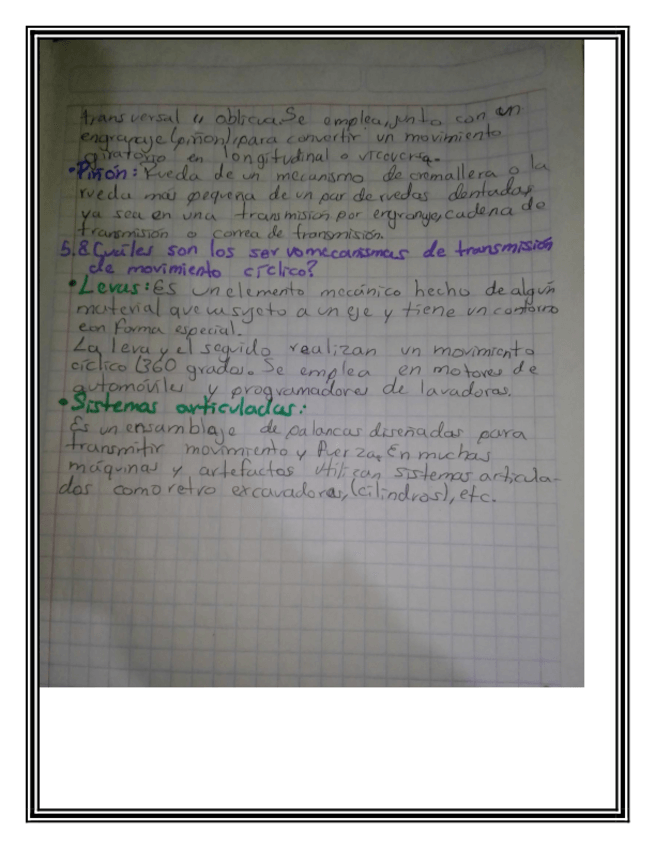 transversal u oblicua. Se emplea, junto con un
engranaje (piñon), para convertir un movimiento
giratorio en longitudinal o viceversa.
• Piñón: Rueda de un mecanismo de cremallera o la
rueda más pequeña de un par de ruedas dentadas
ya sea en una transmisión por engranaje, cadena de
transmisión o correa de transmisión.
5.8 Cuáles son los servomecanismos de transmisión
de movimiento cíclico?
• Levas: Es un elemento mecánico hecho de algún
material que va sujeto a un eje y tiene un contorno
con forma especial.
La leva y el seguido realizan un movimiento
cíclico (360 grados. Se emplea en motores de
automóviles y programadores de lavadoras.
• Sistemas articulados:
Es un ensamblaje de palancas diseñadas para
transmitir movimiento y fuerza. En muchas
máquinas y artefactos utilizan sistemas articula-
dos como retro excavadoras, (cilindros), etc.